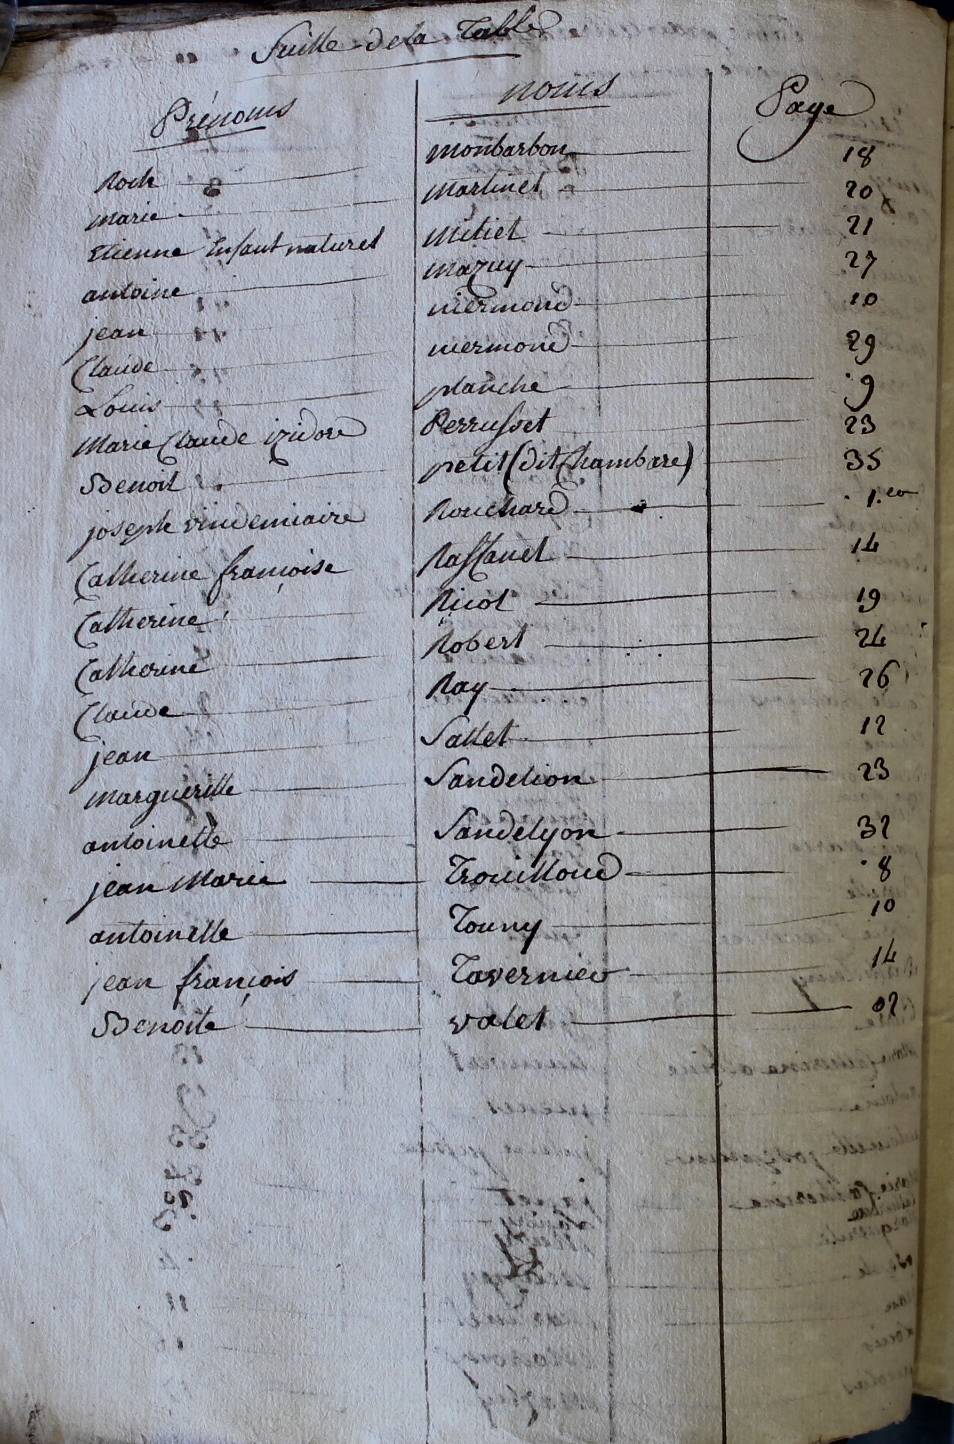 Suitte de la Table
Prénoms noms Page
Roch monbarbon 18
marie martinet 20
Etienne Enfant naturel mitiet 21
antoine mazuy 27
jean niermond 10
Claude niermond 29
Louis planche 9
Marie Claude izidore Perrusset 23
Benoit petit (dit Chambare) 35
joseph vindemiaire Rouchard 1.er
Catherine françoise Rassanet 14
Catherine Ricol 19
Catherine Robert 24
Claude Ray 26
jean Sallet 12
Margueritte Sandelion 23
antoinette Sandelyon 32
jean Marie Trouilloud 8
antoinette Touny 10
jean françois Tavernier 14
Benoite valet 02